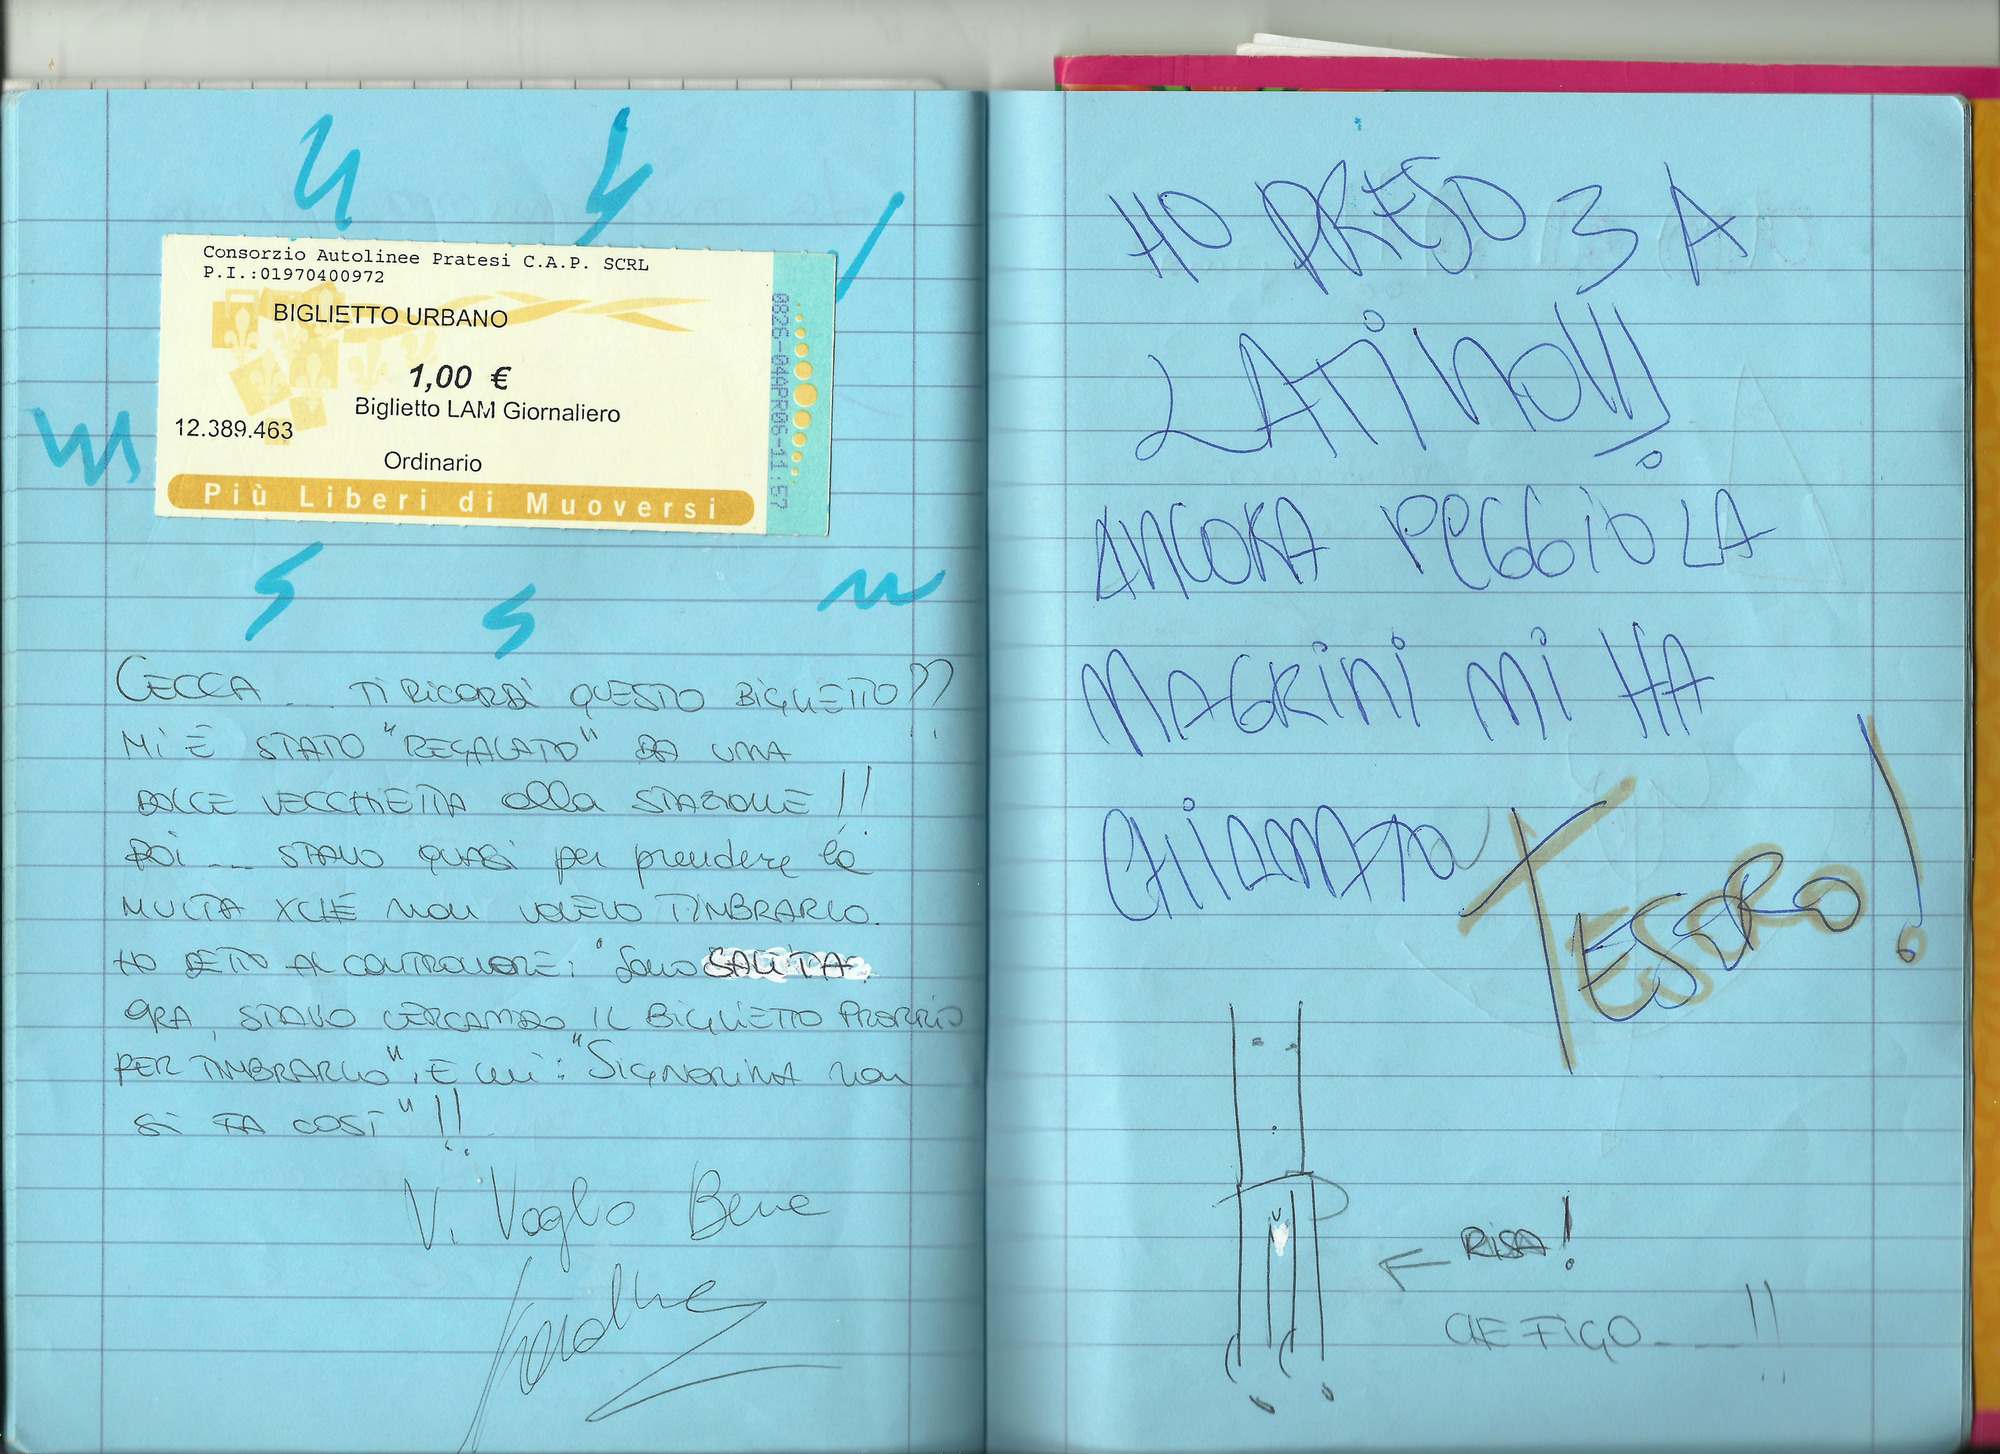 Consorzio Autolinee Pratesi C.A.P. SCRL
P.I.:01970400972
BIGLIETTO URBANO
1,00 €
Biglietto LAM Giornaliero
12.389.463
Ordinario
Più Liberi di Muoversi
0826-04APR06-11:57
CECCA ... TI RICORDI QUESTO BIGLIETTO??
MI È STATO "REGALATO" DA UNA
DOLCE VECCHIETTA alla STAZIONE!!
POI ... STAVO QUASI per prendere la
MULTA XCHÉ non VOLEVO TIMBRARLO.
HO DETTO AL CONTROLLORE: "Sono SALITA
ORA, STAVO CERCANDO IL BIGLIETTO PROPRIO
PER TIMBRARLO", E LUI: "SIGNORINA non
SI FA COSÌ"!!
V. Voglio Bene
HO PRESO 3 A
LATINO!!!
ANCORA PEGGIO LA
MAGRINI MI HA
CHIAMATO TESORO!
RISA!
CHE FIGO ...!!